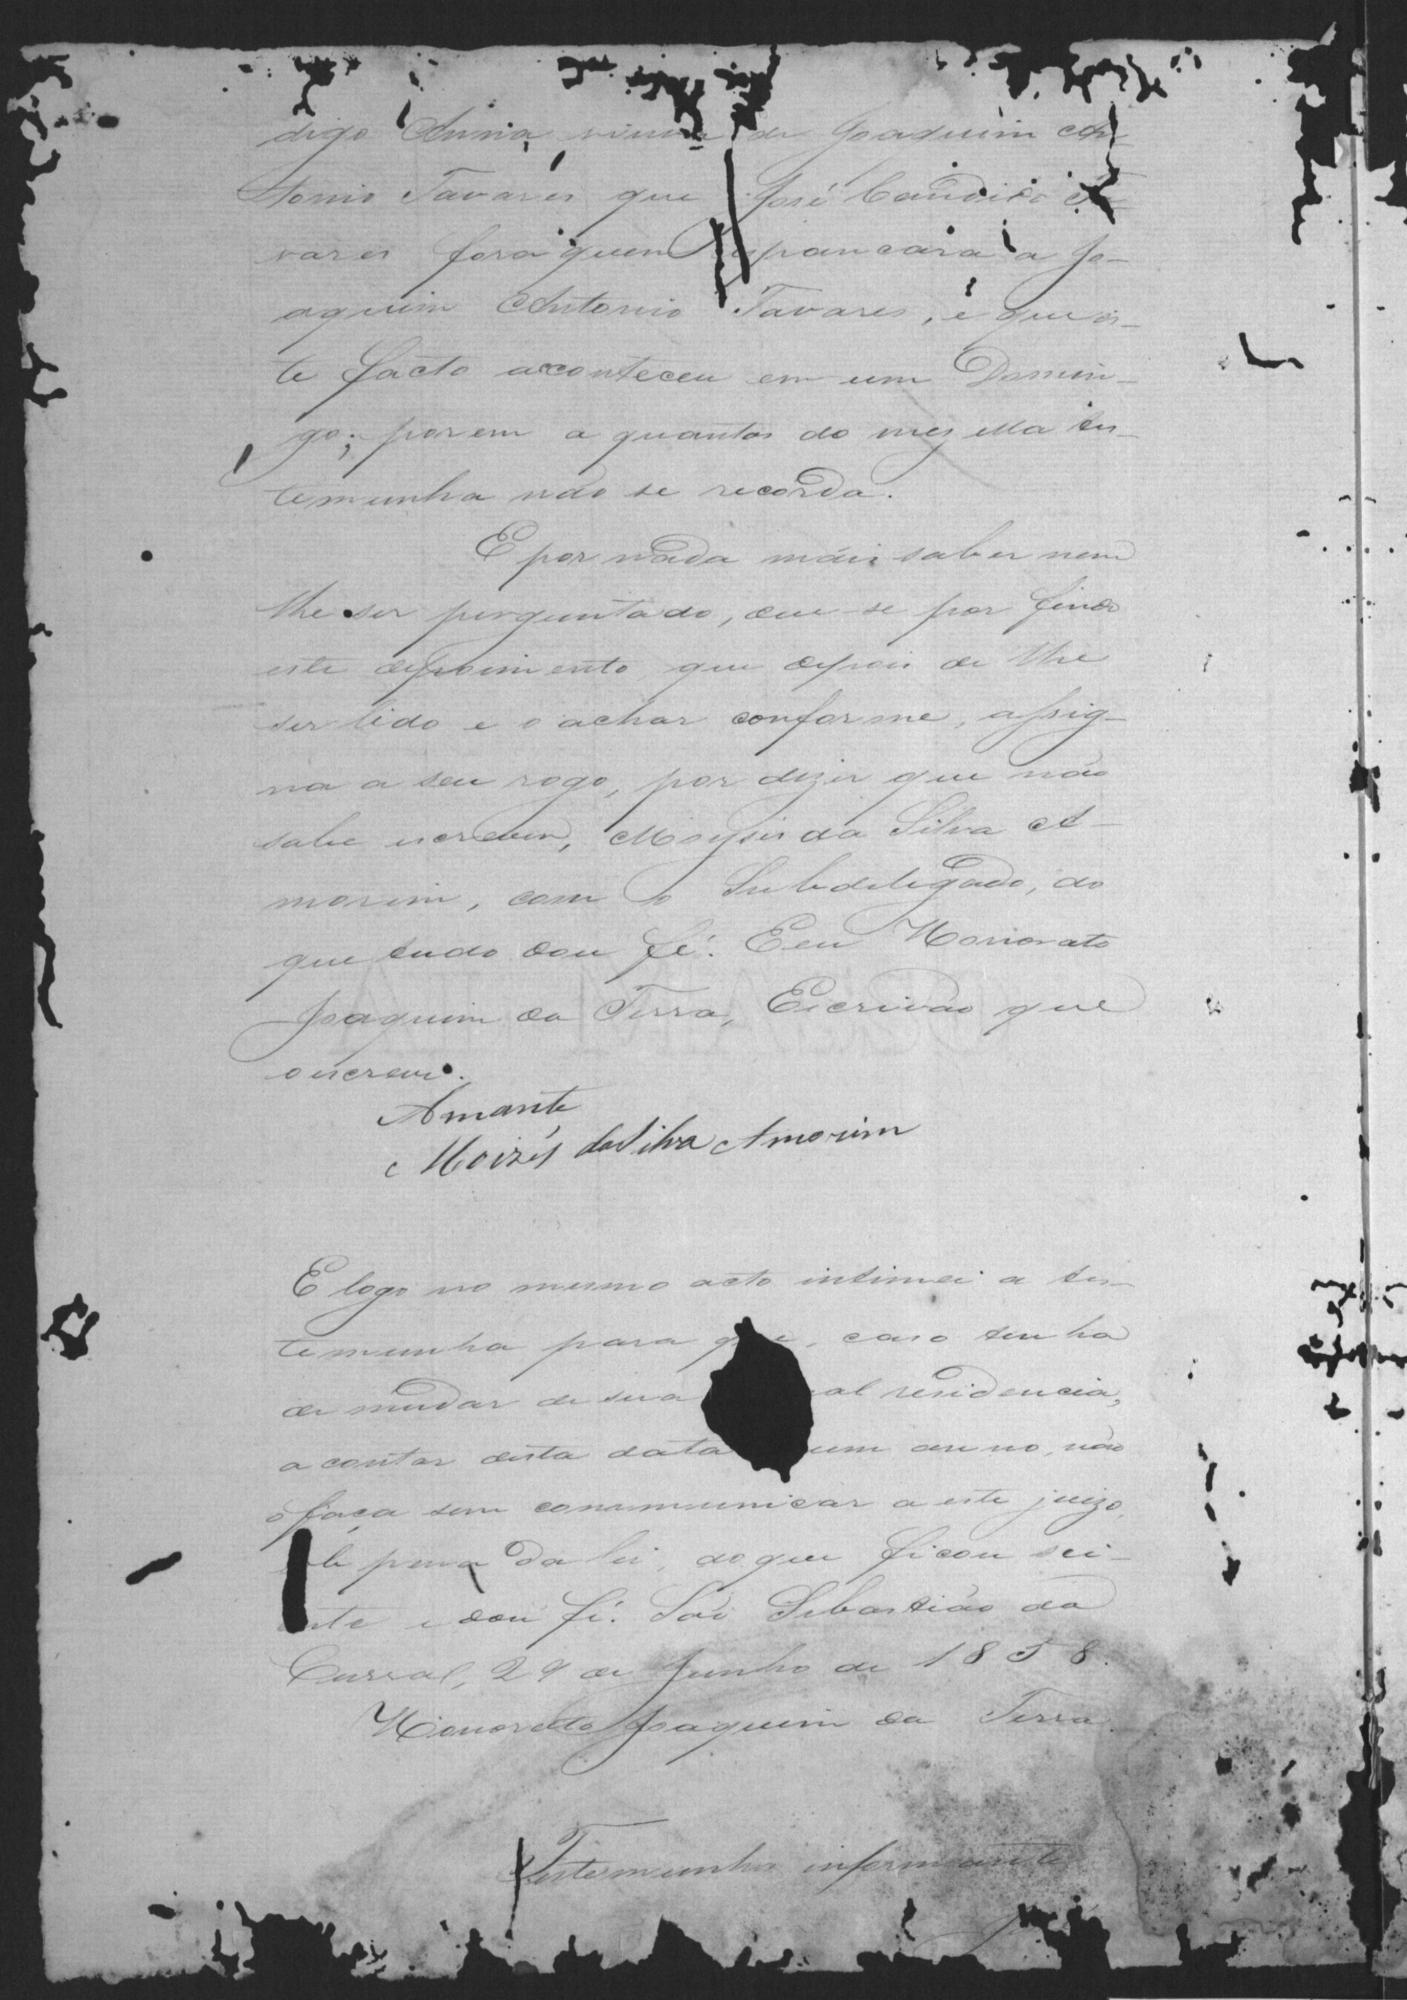 digo Anna, viuva de Joaquim An-
tonio Tavares que José Candido Ta-
vares fora quem espancara a Jo-
aquim Antonio Tavares, e que es-
te facto aconteceu em um Domin-
go; porem a quantos do mez ella tes-
temunha não se recorda.
E por nada mais saber nem
lhe ser perguntado, deu-se por findo
este depoimento que depois de lhe
ser lido e o achar conforme, assig-
na a seu rogo, por dizer que não
sabe escrever, Moysés da Silva A-
morim, com o Subdelegado, do
que tudo dou fé. E eu Honorato
Joaquim da Terra, Escrivão que
o escrevi.
Amante
Moizés da Silva Amorim
E logo no mesmo acto intimei a tes-
temunha para que, caso tenha
de mudar de sua al residencia,
a contar desta data um anno, não
o faça sem communicar a este juizo,
sob pena da lei, do que ficou sci-
ente e dou fé. São Sebastião da
Cural, 29 de Junho de 1858.
Honorato Joaquim da Terra.
Testemunha informante